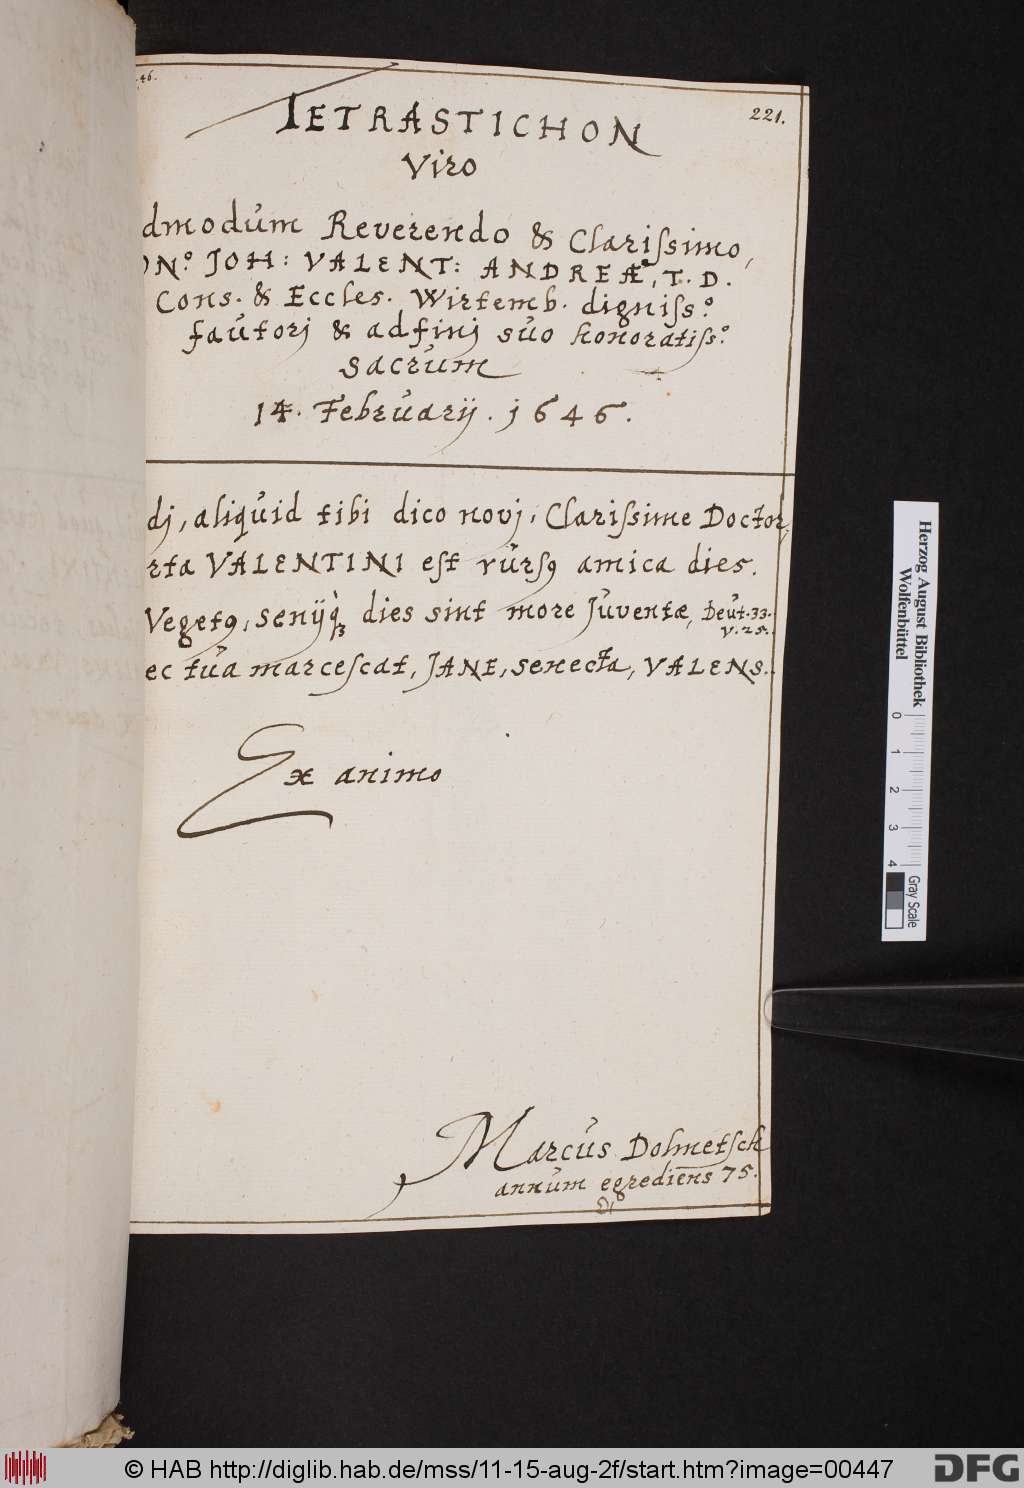 46.
221.
TETRASTICHON
Viro
dmodúm Reverendo & Clarissimo,
N.º JOH: VALENT: ANDREÆ, T. D.
Cons. & Eccles. Wirtemb. digniss.º
faútorj & adfinj súo honoratiss.º
sacrúm
14. Febrúarij. 1646.
dj, aliqúid tibi dico novj, Clarissime Doctor,
rta VALENTINI est rúrsꝯ amica dies.
Vegetꝯ, senijq̀ꝫ dies sint more Júventæ, Deút. 33.
v. 25.
ec túa marcescat, JANE, senecta, VALENS.
Ex animo
Marcús Dolmetsch
annúm egrediens 75.
Herzog August Bibliothek
Wolfenbüttel
0 1 2 3 4
Gray Scale
© HAB http://diglib.hab.de/mss/11-15-aug-2f/start.htm?image=00447
DFG